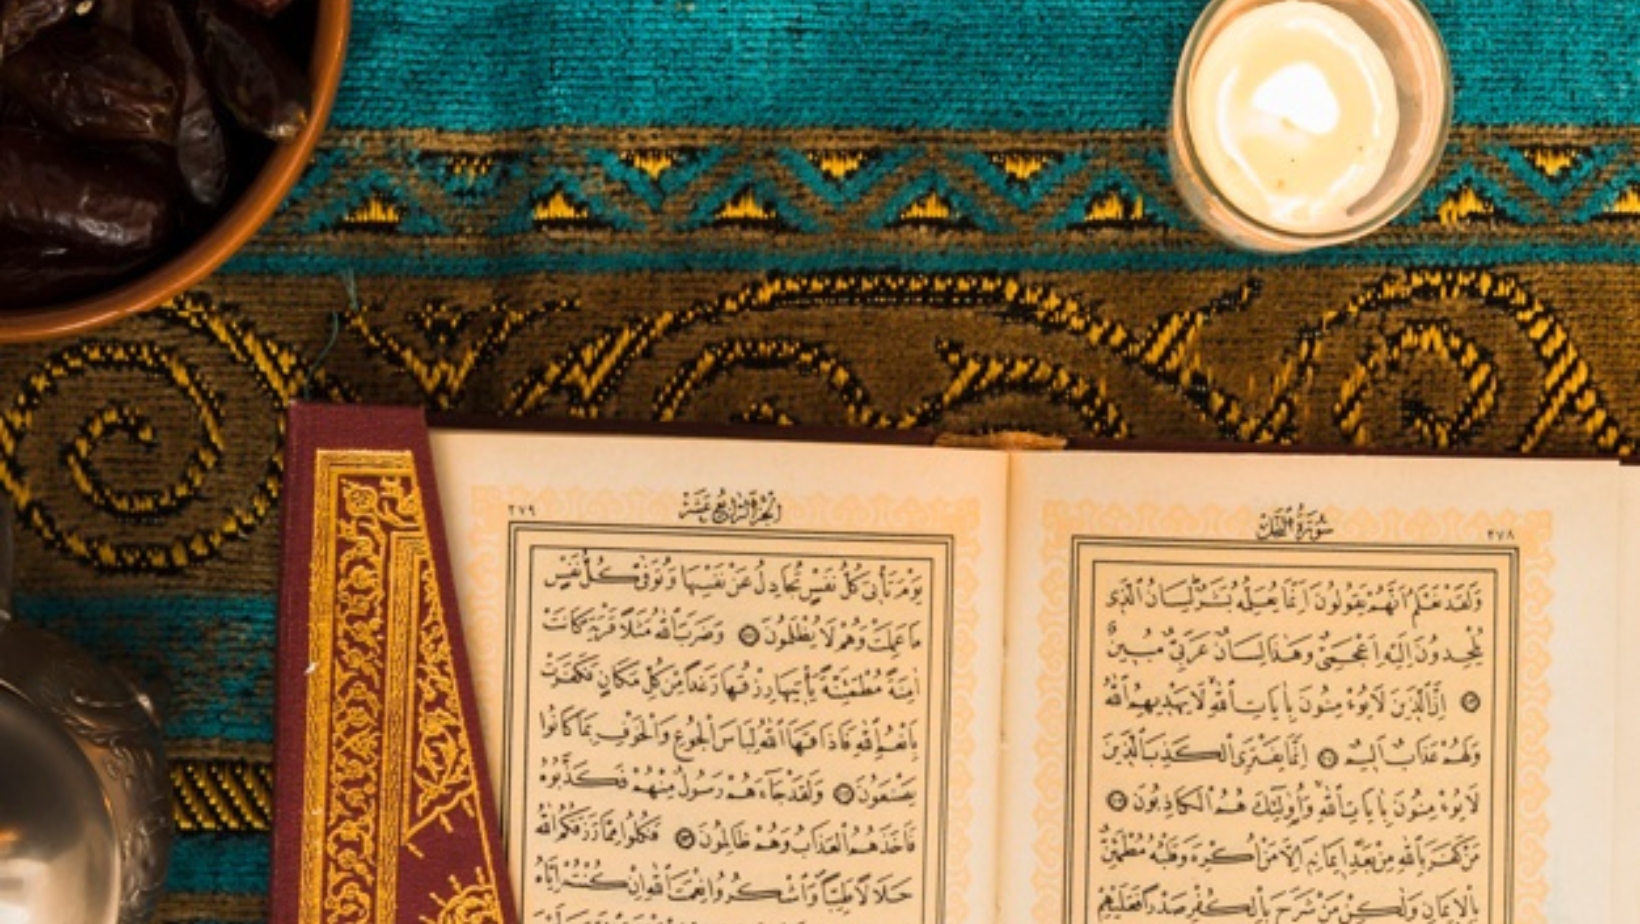 سُورَةُ النَّحْلِ
٢٧٨
وَلَقَدْ نَعْلَمُ اَنَّهُمْ يَقُولُونَ اِنَّمَا يُعَلِّمُهُ بَشَرٌ لِسَانُ الَّذ۪ى
يُلْحِدُونَ اِلَيْهِ اَعْجَمِىٌّ وَهٰذَا لِسَانٌ عَرَبِىٌّ مُب۪ينٌ
اِنَّ الَّذ۪ينَ لَا يُؤْمِنُونَ بِاٰيَاتِ اللّٰهِ لَا يَهْد۪يهِمُ اللّٰهُ
وَلَهُمْ عَذَابٌ اَل۪يمٌ اِنَّمَا يَفْتَرِى الْكَذِبَ الَّذ۪ينَ
لَا يُؤْمِنُونَ بِاٰيَاتِ اللّٰهِ وَاُو۬لٰٓئِكَ هُمُ الْكَاذِبُونَ
مَنْ كَفَرَ بِاللّٰهِ مِنْ بَعْدِ ا۪يمَانِه۪ٓ اِلَّا مَنْ اُكْرِهَ وَقَلْبُهُ مُطْمَئِنٌّ
بِالْا۪يمَانِ وَلٰكِنْ مَنْ شَرَحَ بِالْكُفْرِ صَدْرًا فَعَلَيْهِمْ
اَلْجُزْءُ الرَّابِعُ عَشَرَ
٢٧٩
يَوْمَ تَأْت۪ى كُلُّ نَفْسٍ تُجَادِلُ عَنْ نَفْسِهَا وَتُوَفّٰى كُلُّ نَفْسٍ
مَا عَمِلَتْ وَهُمْ لَا يُظْلَمُونَ وَضَرَبَ اللّٰهُ مَثَلًا قَرْيَةً كَانَتْ
اٰمِنَةً مُطْمَئِنَّةً يَأْت۪يهَا رِزْقُهَا رَغَدًا مِنْ كُلِّ مَكَانٍ فَكَفَرَتْ
بِاَنْعُمِ اللّٰهِ فَاَذَاقَهَا اللّٰهُ لِبَاسَ الْجُوعِ وَالْخَوْفِ بِمَا كَانُوا
يَصْنَعُونَ وَلَقَدْ جَٓاءَهُمْ رَسُولٌ مِنْهُمْ فَكَذَّبُوهُ
فَاَخَذَهُمُ الْعَذَابُ وَهُمْ ظَالِمُونَ فَكُلُوا مِمَّا رَزَقَكُمُ اللّٰهُ
حَلَالًا طَيِّبًا وَاشْكُرُوا نِعْمَتَ اللّٰهِ اِنْ كُنْتُمْ اِيَّاهُ